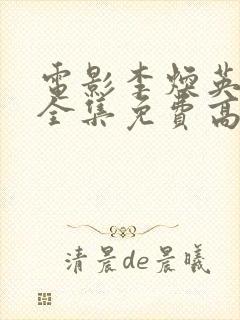 電影李煙英
全集免費高
清晨de晨曦